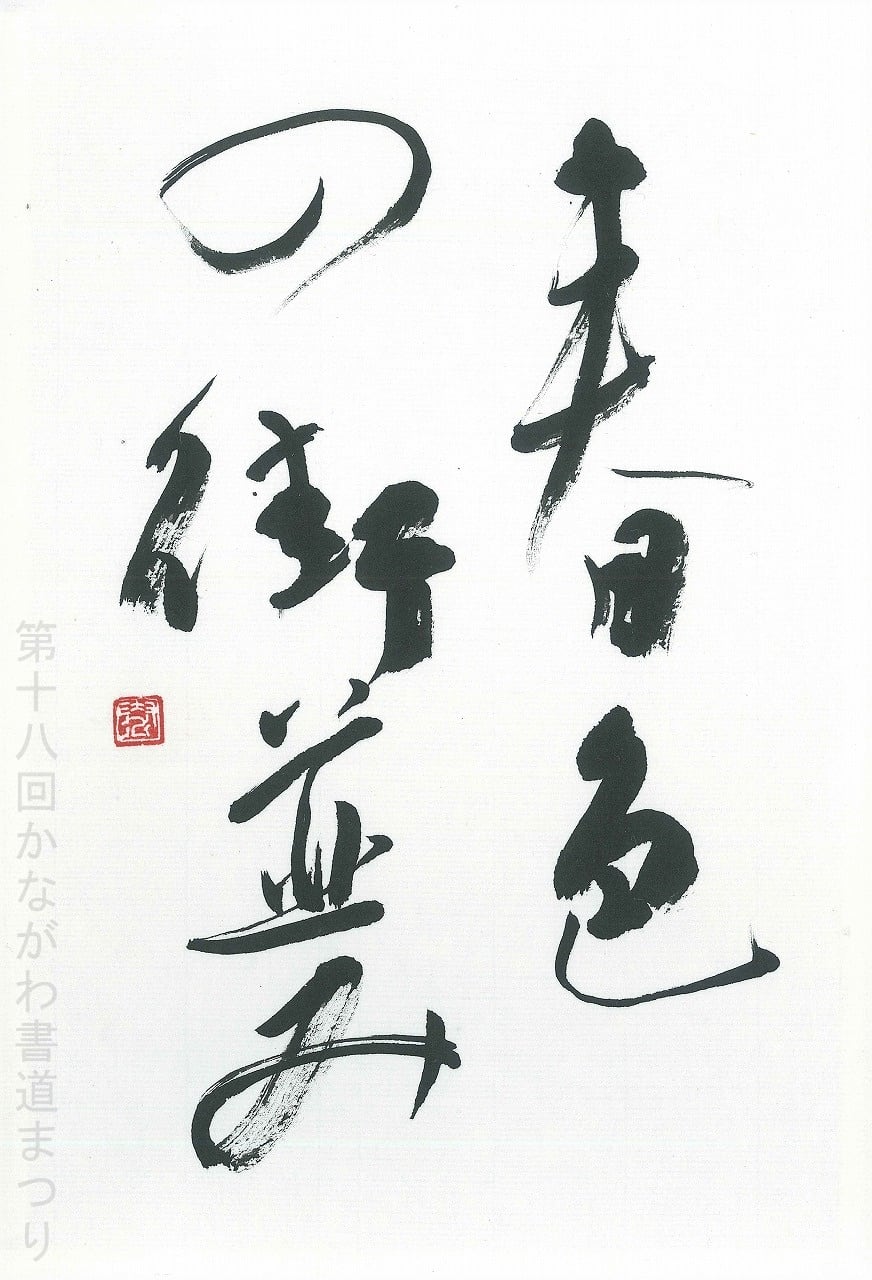 春色
の街並み
第十八回かながわ書道まつり